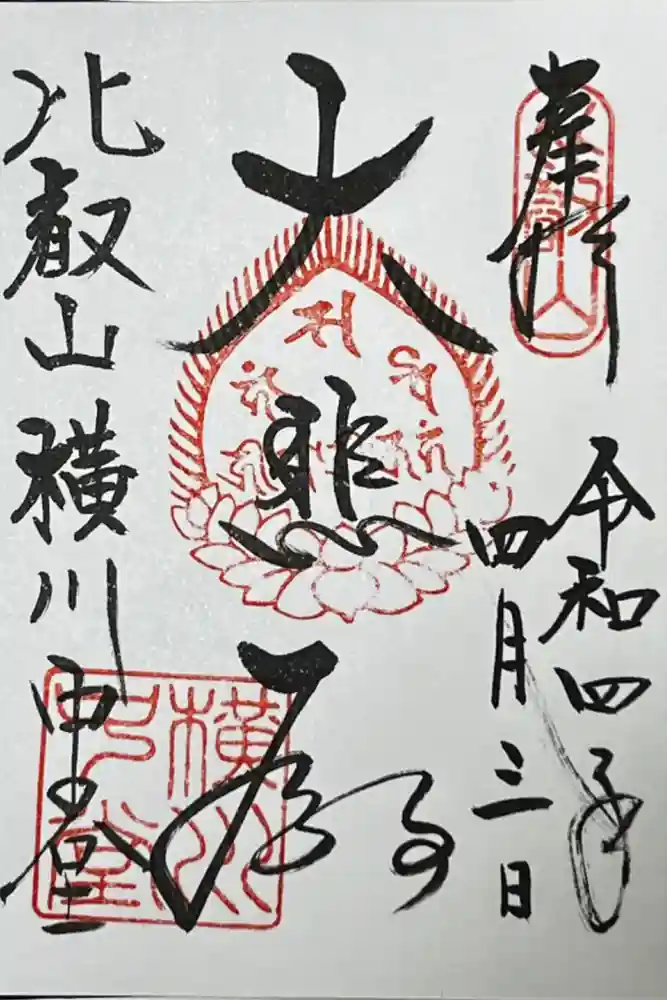 奉拝
令和四年
四月三日
大悲殿
比叡山横川中堂
比叡山
横川
中堂